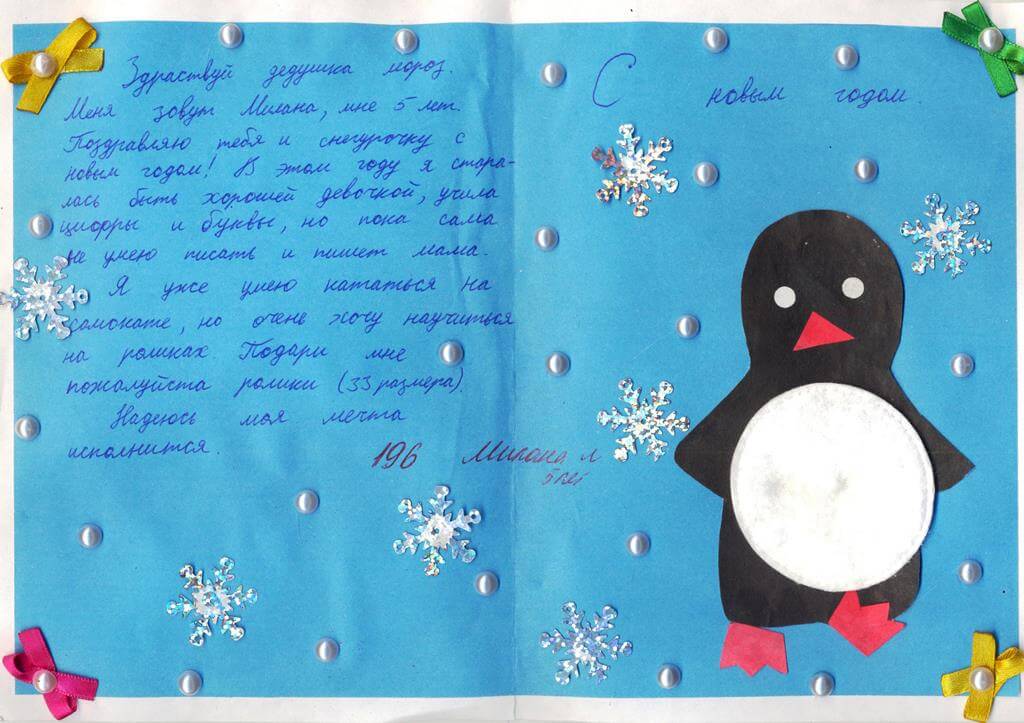 Здраствуй дедушка мороз.
Меня зовут Милана, мне 5 лет.
Поздравляю тебя и снегурочку с
новым годом! В этом году я стара-
лась быть хорошей девочкой, учила
цифры и буквы, но пока сама
не умею писать и пишет мама.
Я уже умею кататься на
самокате, но очень хочу научиться
на роликах. Подари мне
пожалуйста ролики (33 размера).
Надеюсь моя мечта
исполнится.
196 Милана л
5 лет
С новым годом.